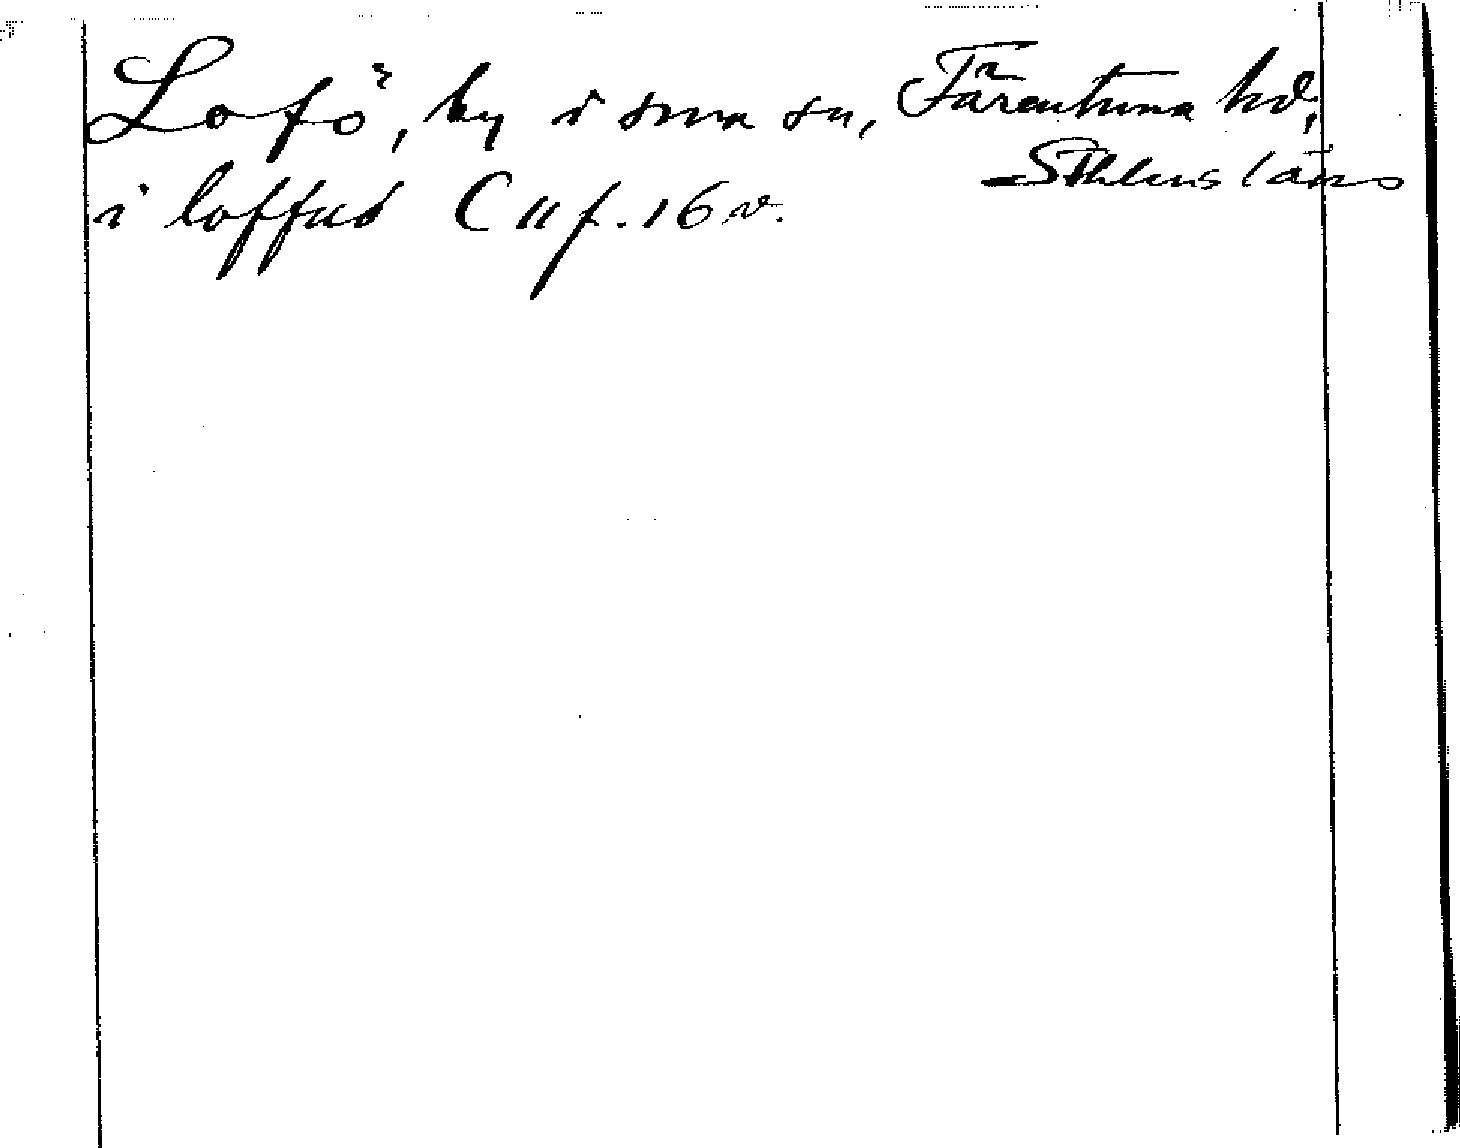 Lofö, by i sma sn, Färentuna hd,
Sthlms läns
i loffud C 11 f. 16 v.